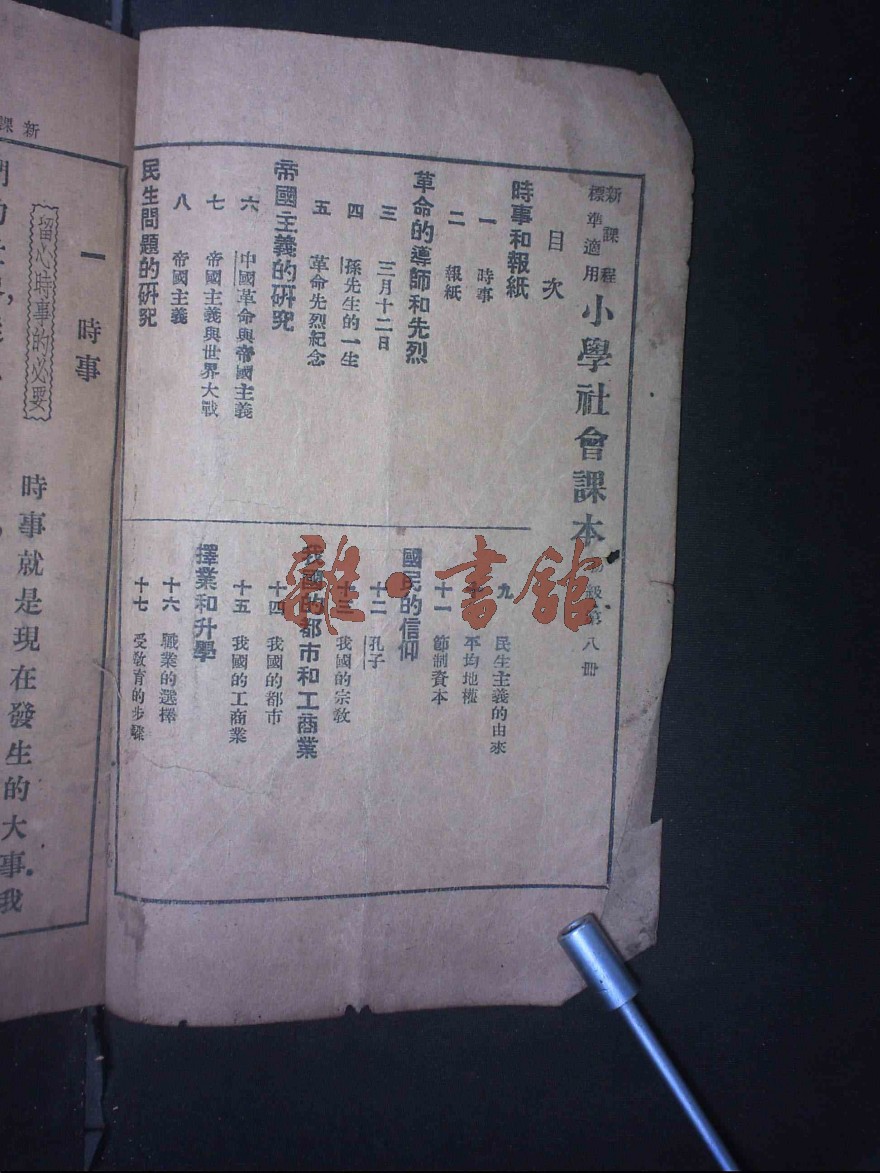 新課程
標準適用
小學社會課本
級第八冊
目次
時事和報紙
一 時事
二 報紙
革命的導師和先烈
三 三月十二日
四 孫先生的一生
五 革命先烈紀念
帝國主義的研究
六 中國革命與帝國主義
七 帝國主義與世界大戰
八 帝國主義
民生問題的研究
九 民生主義的由來
十 平均地權
十一 節制資本
國民的信仰
十二 孔子
十三 我國的宗教
我國的都市和工商業
十四 我國的都市
十五 我國的工商業
擇業和升學
十六 職業的選擇
十七 受教育的步驟
雜·書館
新課
一 時事
留心時事的必要
時事就是現在發生的大事。我